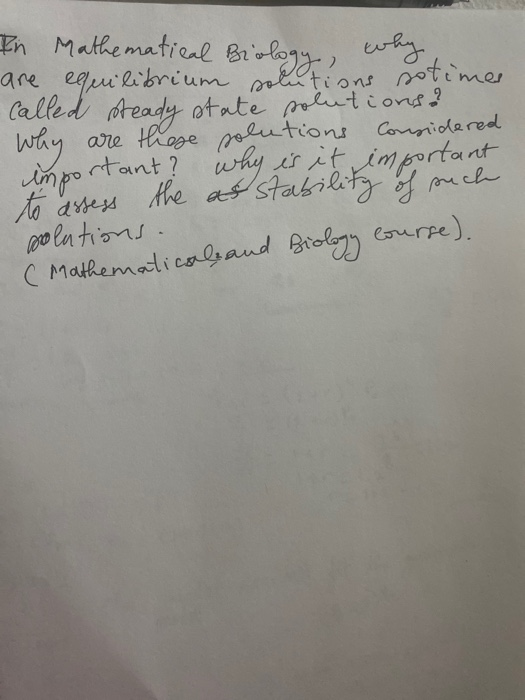 In Mathematical Biology, why
are equilibrium solutions sotimes
called steady state solutions?
Why are these solutions considered
important? why is it important
to assess the as stability of such
solutions.
(Mathematical and Biology course).